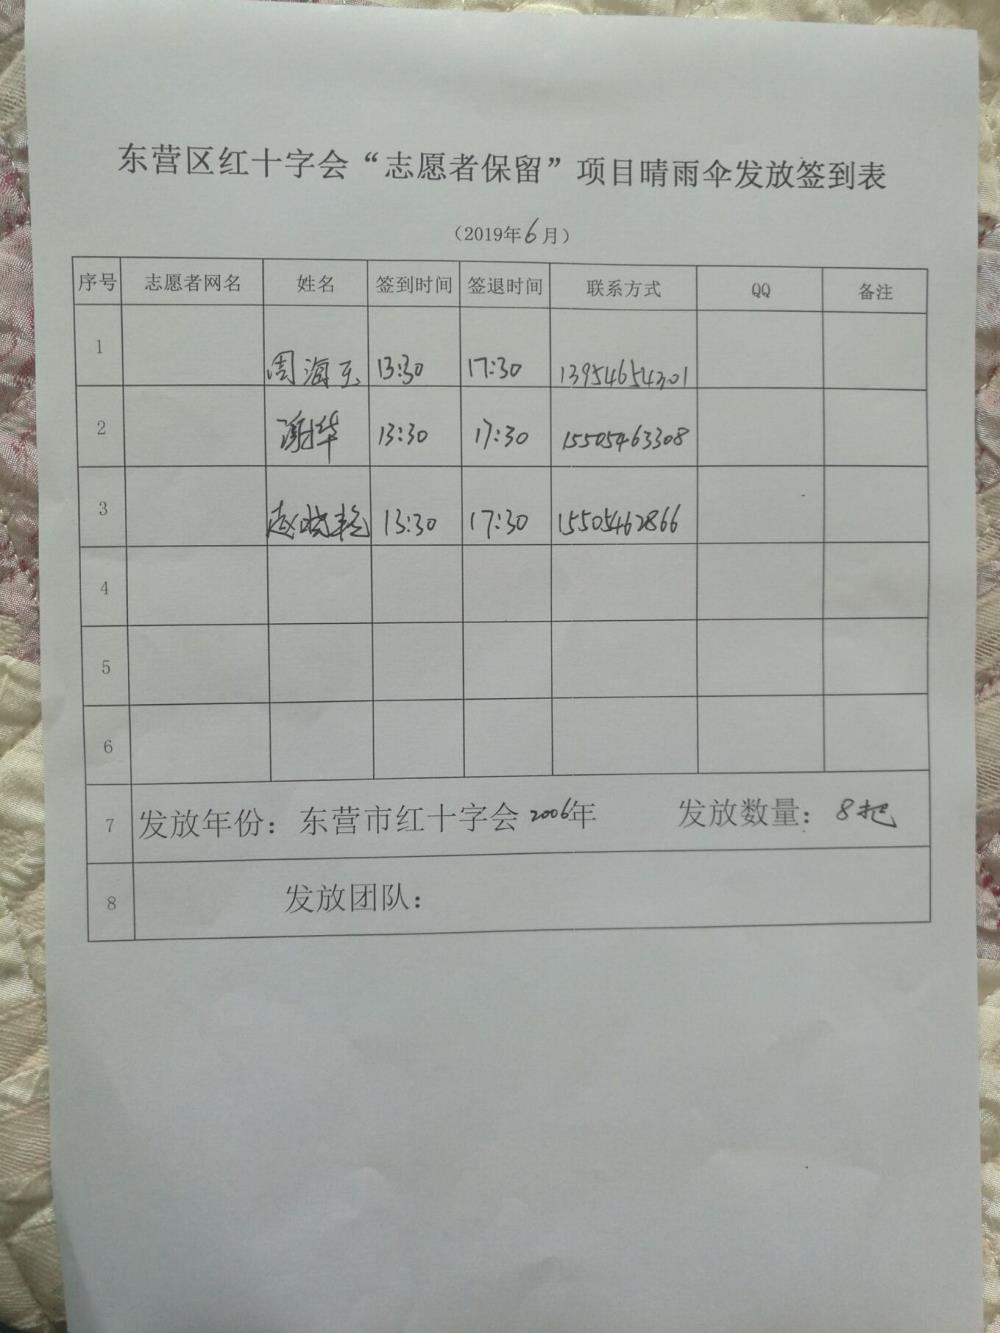 东营区红十字会“志愿者保留”项目晴雨伞发放签到表
（2019年6月）
序号 志愿者网名 姓名 签到时间 签退时间 联系方式 QQ 备注
1 周海玉 13:30 17:30 13954654301
2 谢华 13:30 17:30 15505463308
3 赵晓艳 13:30 17:30 15505462866
4
5
6
7 发放年份：东营市红十字会2006年 发放数量：8把
8 发放团队：